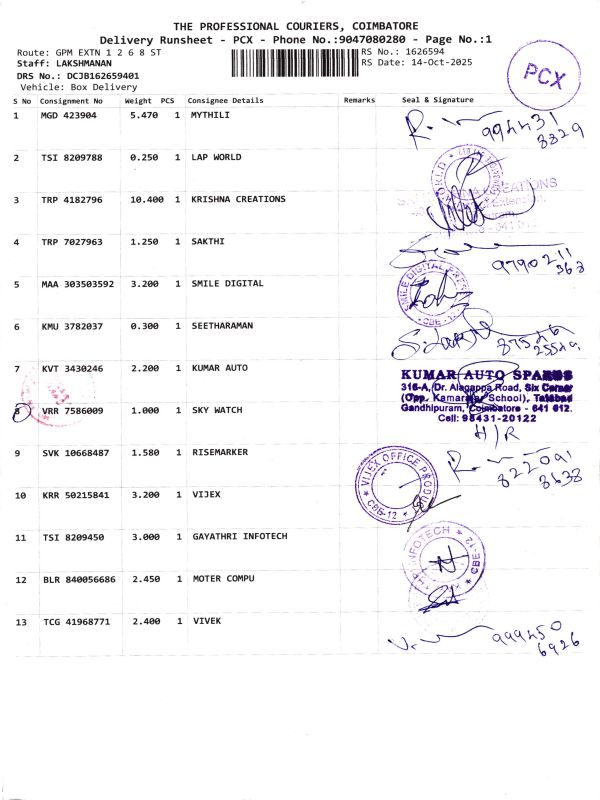 THE PROFESSIONAL COURIERS, COIMBATORE
Delivery Runsheet - PCX - Phone No.:9047080280 - Page No.:1
Route: GPM EXTN 1 2 6 8 ST
RS No.: 1626594
Staff: LAKSHMANAN
RS Date: 14-Oct-2025
DRS No.: DCJB162659401
Vehicle: Box Delivery
PCX
S No Consignment No Weight PCS Consignee Details Remarks Seal & Signature
1 MGD 423904 5.470 1 MYTHILI
994431
8829
2 TSI 8209788 0.250 1 LAP WORLD
3 TRP 4182796 10.400 1 KRISHNA CREATIONS
4 TRP 7027963 1.250 1 SAKTHI
9790211
368
5 MAA 303503592 3.200 1 SMILE DIGITAL
SMILE DIGITAL
CBE-12
6 KMU 3782037 0.300 1 SEETHARAMAN
87526
25529
7 KVT 3430246 2.200 1 KUMAR AUTO
KUMAR AUTO SPARES
316-A, Dr. Alagappa Road, Six Corner
(Opp. Kamarajar School), Tatabad
Gandhipuram, Coimbatore - 641 012.
Cell: 98431-20122
8 VRR 7586009 1.000 1 SKY WATCH
H/R
9 SVK 10668487 1.580 1 RISEMARKER
R.
822091
8638
10 KRR 50215841 3.200 1 VIJEX
VIJEX OFFICE PRODU
CBE-12
11 TSI 8209450 3.000 1 GAYATHRI INFOTECH
INFOTECH
CBE-12
12 BLR 840056686 2.450 1 MOTER COMPU
13 TCG 41968771 2.400 1 VIVEK
999450
6926